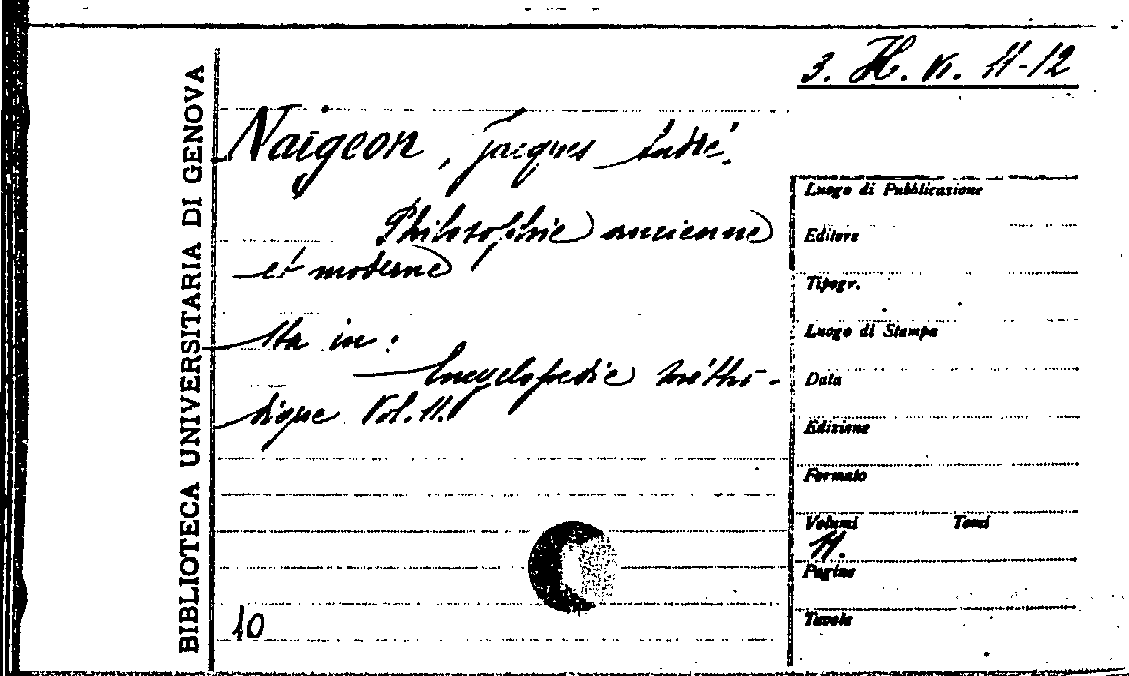 3. H. VI. 11-12
BIBLIOTECA UNIVERSITARIA DI GENOVA
Naigeon, Jacques André.
Philosophie ancienne
et moderne
Sta in:
Encyclopedie métho-
dique Vol. II.
10
Luogo di Pubblicazione
Editore
Tipogr.
Luogo di Stampa
Data
Edizione
Formato
Volumi Tomi
II.
Pagine
Tavole